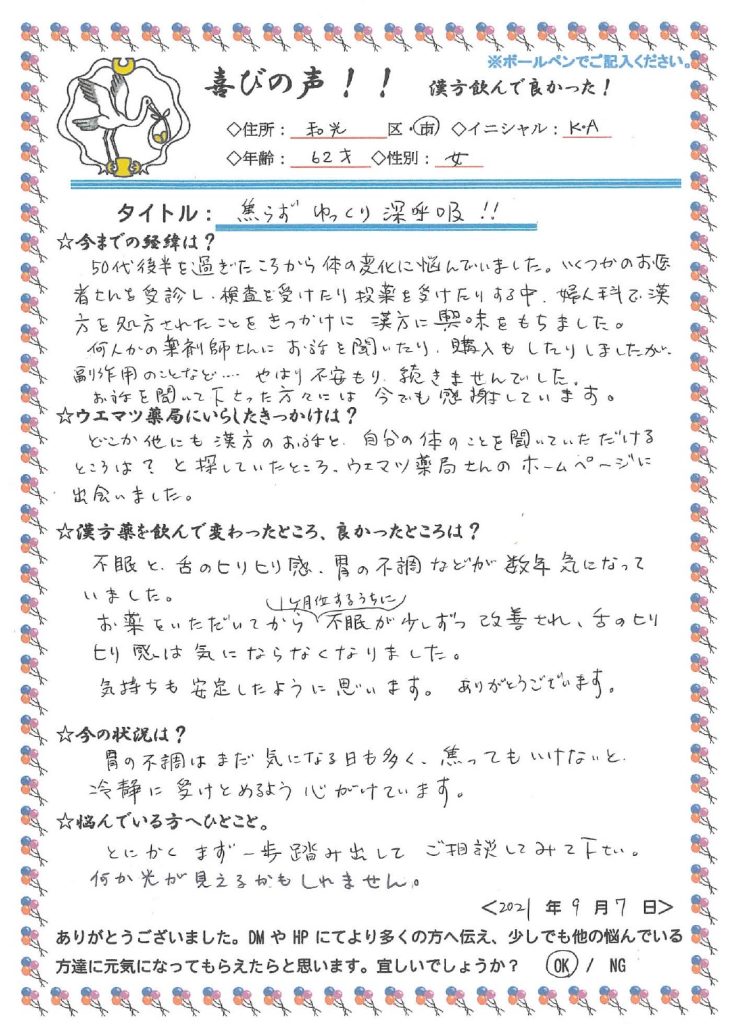 ※ボールペンでご記入ください。
喜びの声！！ 漢方飲んで良かった！
◇住所： 和光 区・市 ◇イニシャル： K・A
◇年齢： 62才 ◇性別： 女
タイトル： 焦らず ゆっくり 深呼吸!!
☆今までの経緯は？
50代後半を過ぎたころから体の変化に悩んでいました。いくつかのお医
者さんを受診し、検査を受けたり投薬を受けたりする中、婦人科で漢
方を処方されたことをきっかけに 漢方に興味をもちました。
何人かの薬剤師さんに お話を聞いたり、購入も したりしましたが、
副作用のことなど…. やはり不安もり、続きませんでした。
お話を聞いて下さった方々には 今でも感謝しています。
☆ウエマツ薬局にいらしたきっかけは？
どこか他にも漢方のお話と、自分の体のことを聞いていただける
ところは？ と探していたところ、ウエマツ薬局さんのホームページに
出会いました。
☆漢方薬を飲んで変わったところ、良かったところは？
不眠と、舌のヒリヒリ感、胃の不調などが数年気になって
いました。
1ヶ月位するうちに
お薬をいただいてから 不眠が少しずつ 改善され、舌のヒリ
ヒリ感は気にならなくなりました。
気持ちも安定したように思います。 ありがとうございます。
☆今の状況は？
胃の不調はまだ 気になる日も多く、焦ってもいけないと、
冷静に 受けとめるよう 心がけています。
☆悩んでいる方へひとこと。
とにかく まず 一歩踏み出して ご相談してみて下さい。
何か光が見えるかもしれません。
＜2021 年 9 月 7 日＞
ありがとうございました。DM や HP にてより多くの方へ伝え、少しでも他の悩んでいる
方達に元気になってもらえたらと思います。宜しいでしょうか？ OK / NG